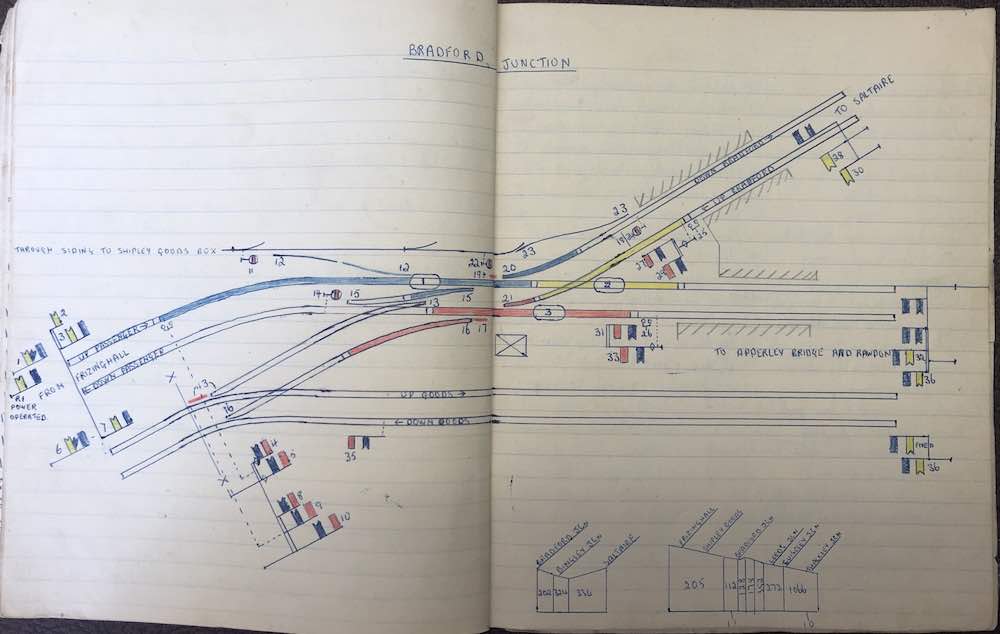 BRADFORD JUNCTION
TO SALTAIRE
DOWN BRADFORD →
← UP BRADFORD
28
30
23
THROUGH SIDING TO SHIPLEY GOODS BOX
11
12
12
22
19
20
23
25
1
2
3
21
15
15
13
14
16
17
31
33
26
UP PASSENGER →
← DOWN PASSENGER
FROM
FRIZINGHALL
2
3
1
POWER
OPERATED.
6
7
X
X
13
16
UP GOODS →
← DOWN GOODS
TO APPERLEY BRIDGE AND RAWDON
32
36
FIXED
36
35
4
5
8
9
10
BRADFORD JCN
BINGLEY JCN
SALTAIRE
202
324
336
FRIZINGHALL
SHIPLEY GOODS
BRADFORD JCN
LEEDS JCN
GUISELEY JCN
205
112
173
272
1066